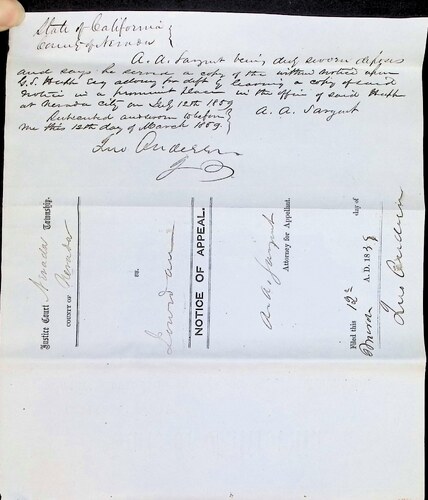 State of California }
County of Nevada }
A. A. Sargent being duly sworn deposes
and says he served a copy of the within notice upon
G.S. Hupp Esq attorney for deft by leaving a copy of said
notice in a prominent place in the office of said Hupp
at Nevada city on July 12th 1859
A. A. Sargent
Subscribed and sworn to before }
me this 12th day of March 1859. }
Anderson
J P
Justice Court Nevada Township.
COUNTY OF Nevada
vs.
NOTICE OF APPEAL.
A. A. Sargent
Attorney for Appellant.
Filed this 12th day of
A. D. 1859